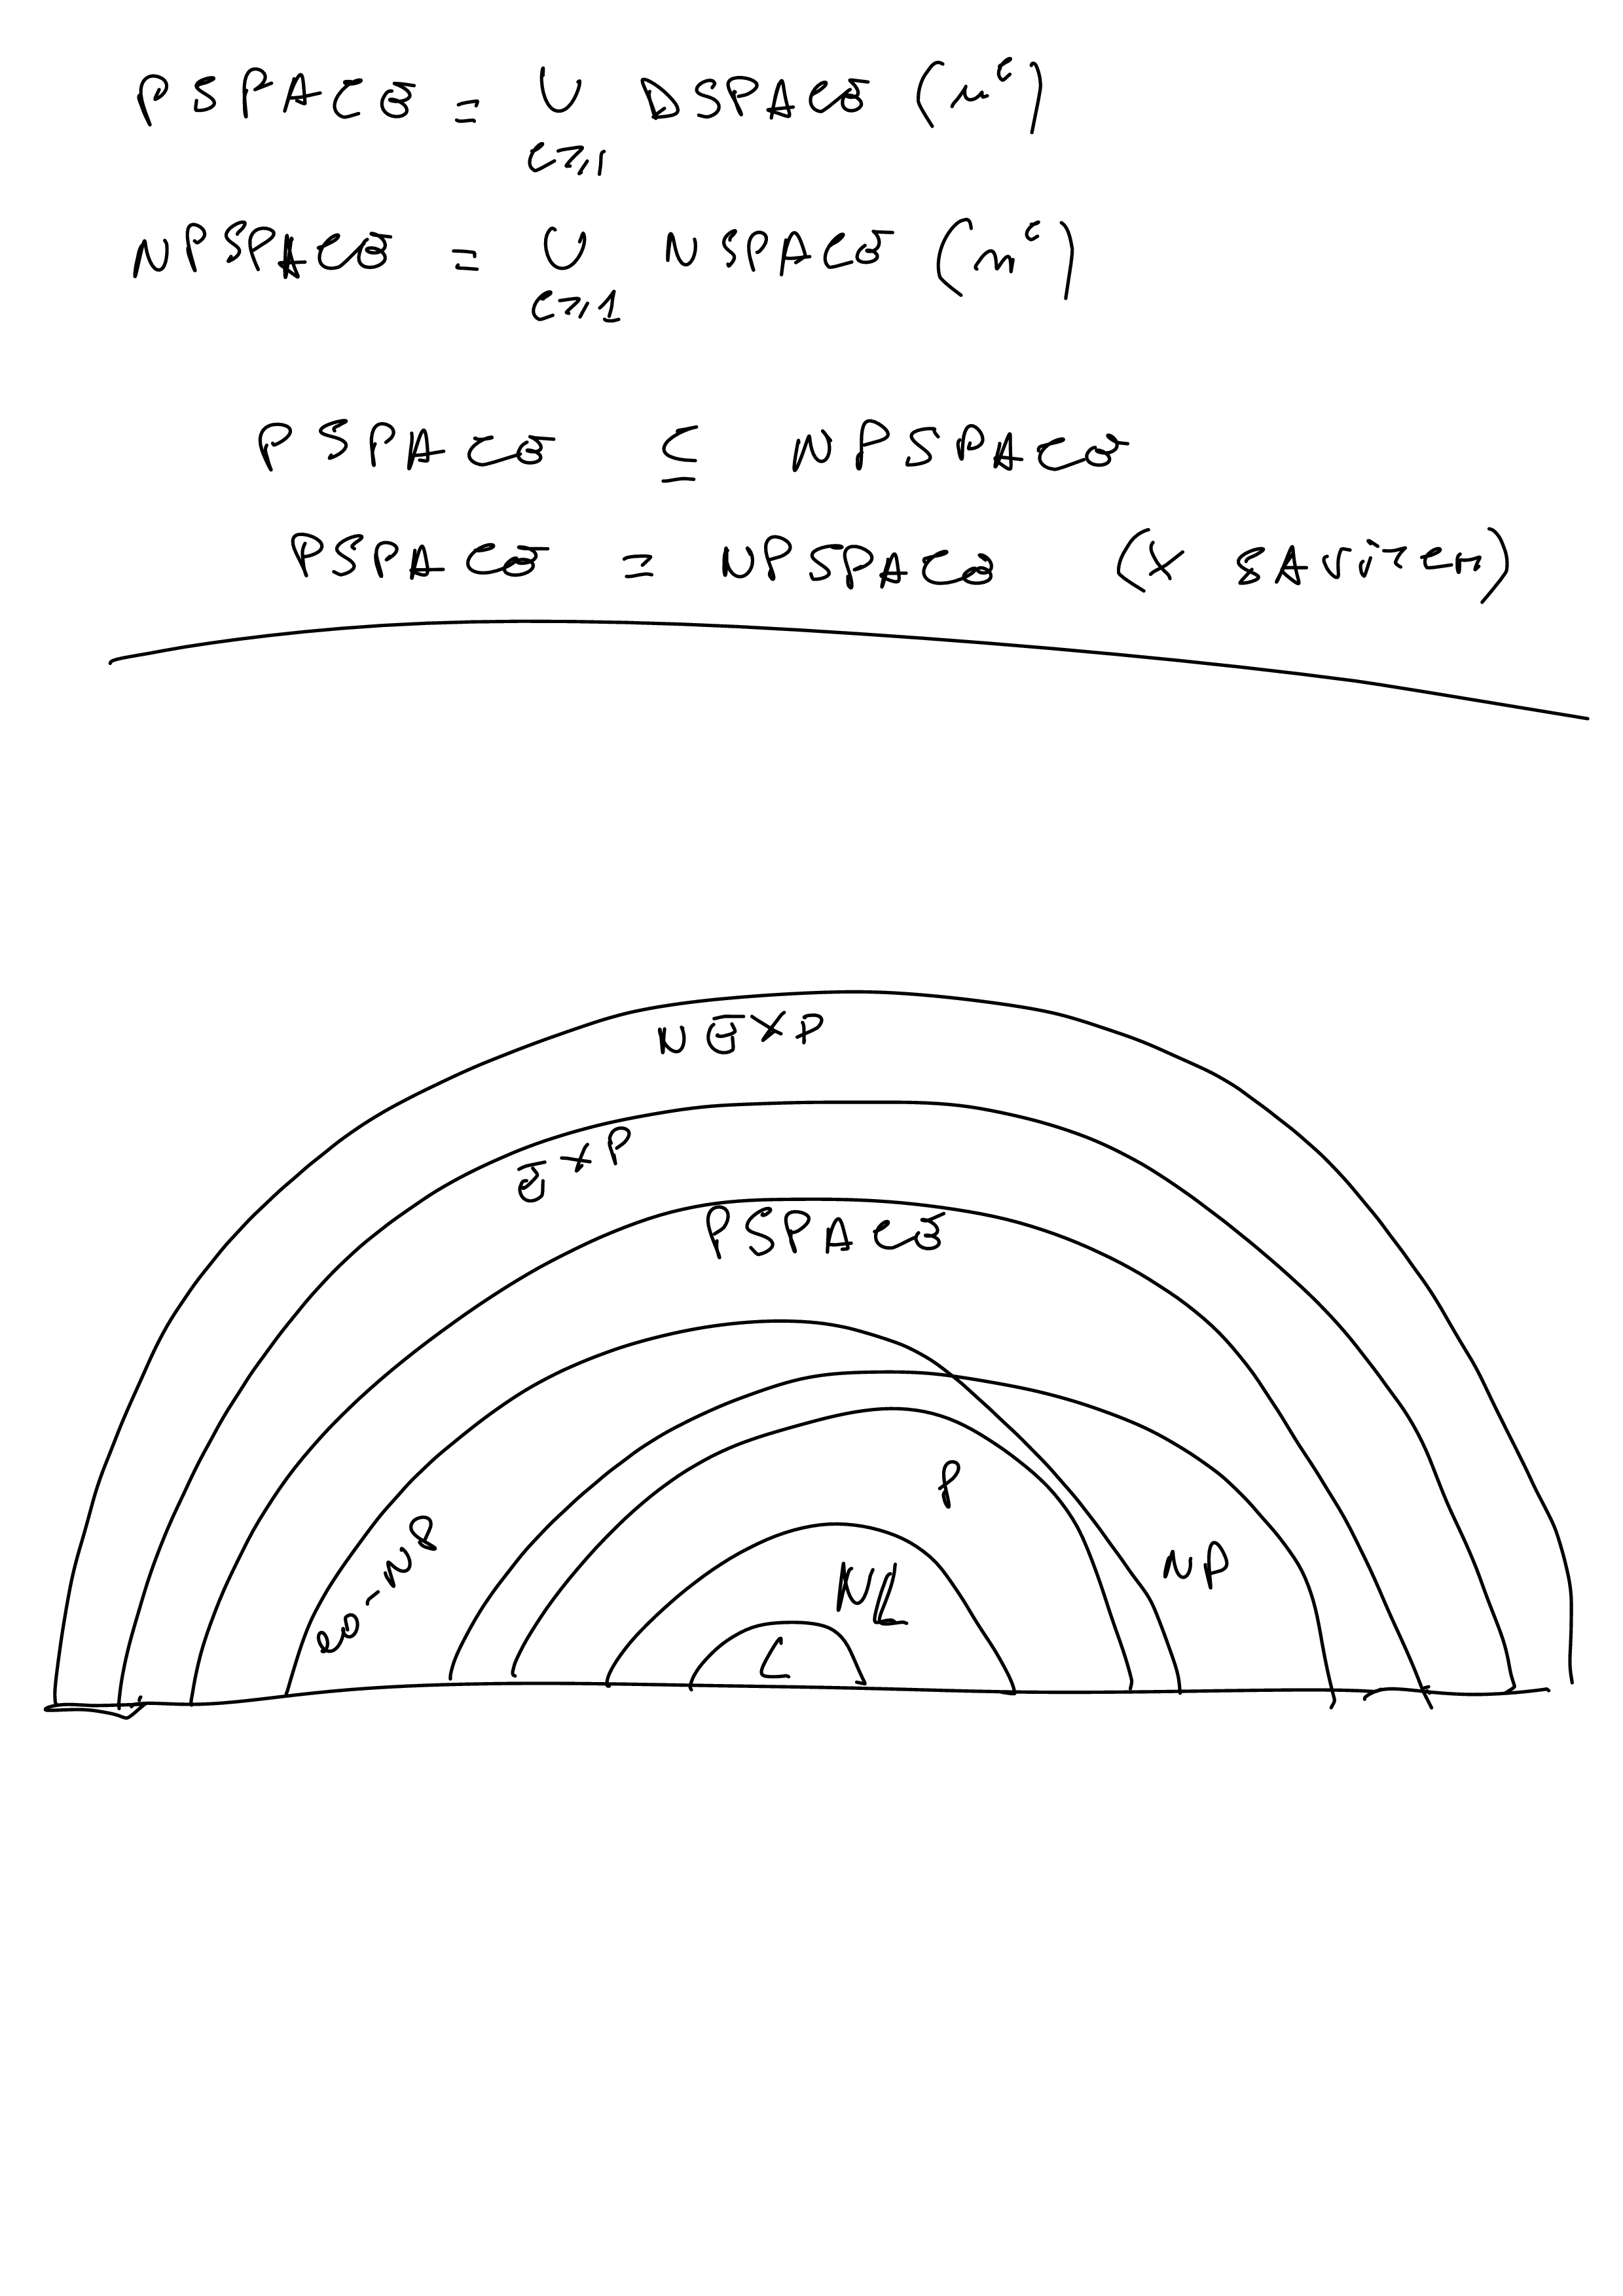 PSPACE = ∪ DSPACE (n^c)
c⩾1
NPSPACE = ∪ NSPACE (n^c)
c⩾1
PSPACE ⊆ NPSPACE
PSPACE = NPSPACE (X SAVITCH)
NEXP
EXP
PSPACE
P
co-NP
NP
NL
L